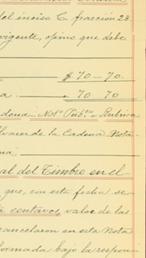 del inciso C fracción 23
vigente, opino que debe
$ 70-70
a. " 70 70
Cadena. Not° Pub°. Rubrica
Alvarez de la Cadena Nota
ma
al del Timbre en el
que, con esta fecha se
centavos valor de las
cancelaron en esta Nota
formada bajo la respon